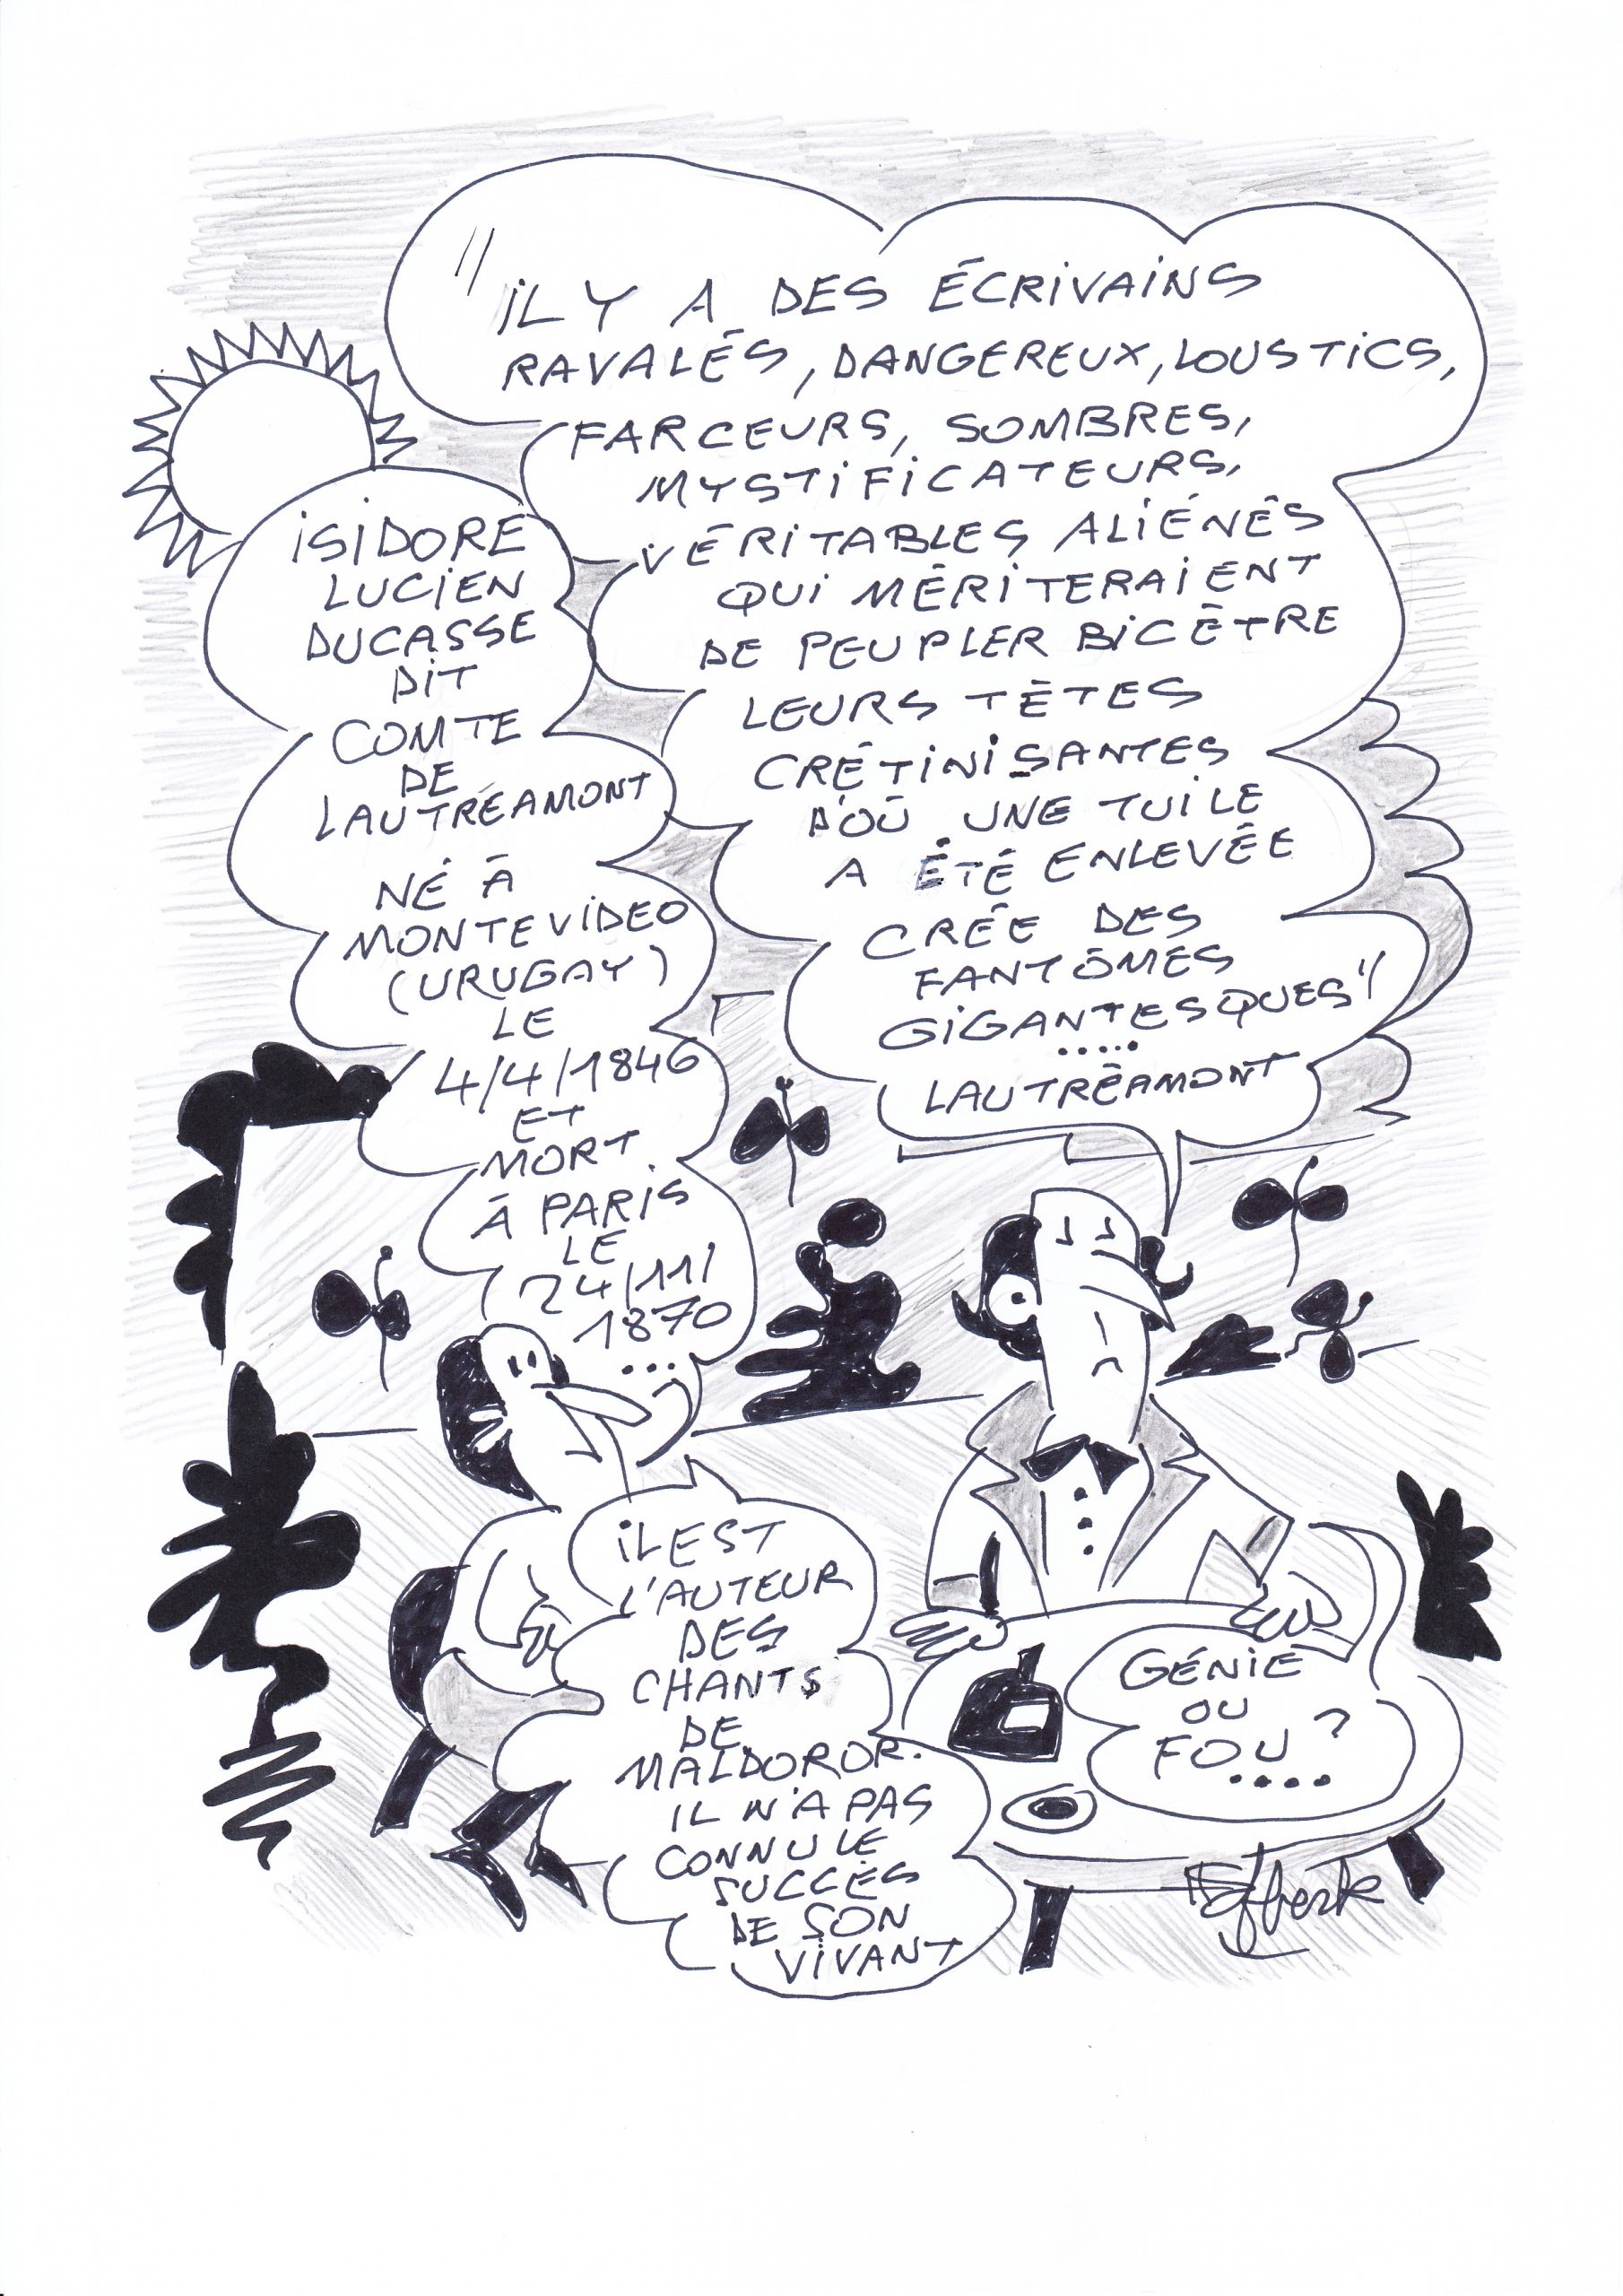 "IL Y A DES ÉCRIVAINS
RAVALÉS, DANGEREUX, LOUSTICS,
FARCEURS, SOMBRES,
MYSTIFICATEURS,
VÉRITABLES ALIÉNÉS
QUI MÉRITERAIENT
DE PEUPLER BICÊTRE
LEURS TÊTES
CRÉTINISANTES
D'OÙ UNE TUILE
A ÉTÉ ENLEVÉE
CRÉE DES
FANTÔMES
GIGANTESQUES"
.....
LAUTRÉAMONT
ISIDORE
LUCIEN
DUCASSE
DIT
COMTE
DE
LAUTRÉAMONT
NÉ À
MONTEVIDEO
(URUGAY)
LE
4/4/1846
ET
MORT
À PARIS
LE
24/11/
1870
...
IL EST
L'AUTEUR
DES
CHANTS
DE
MALDOROR.
IL N'A PAS
CONNU LE
SUCCÈS
DE SON
VIVANT
GÉNIE
OU
FOU ?
....